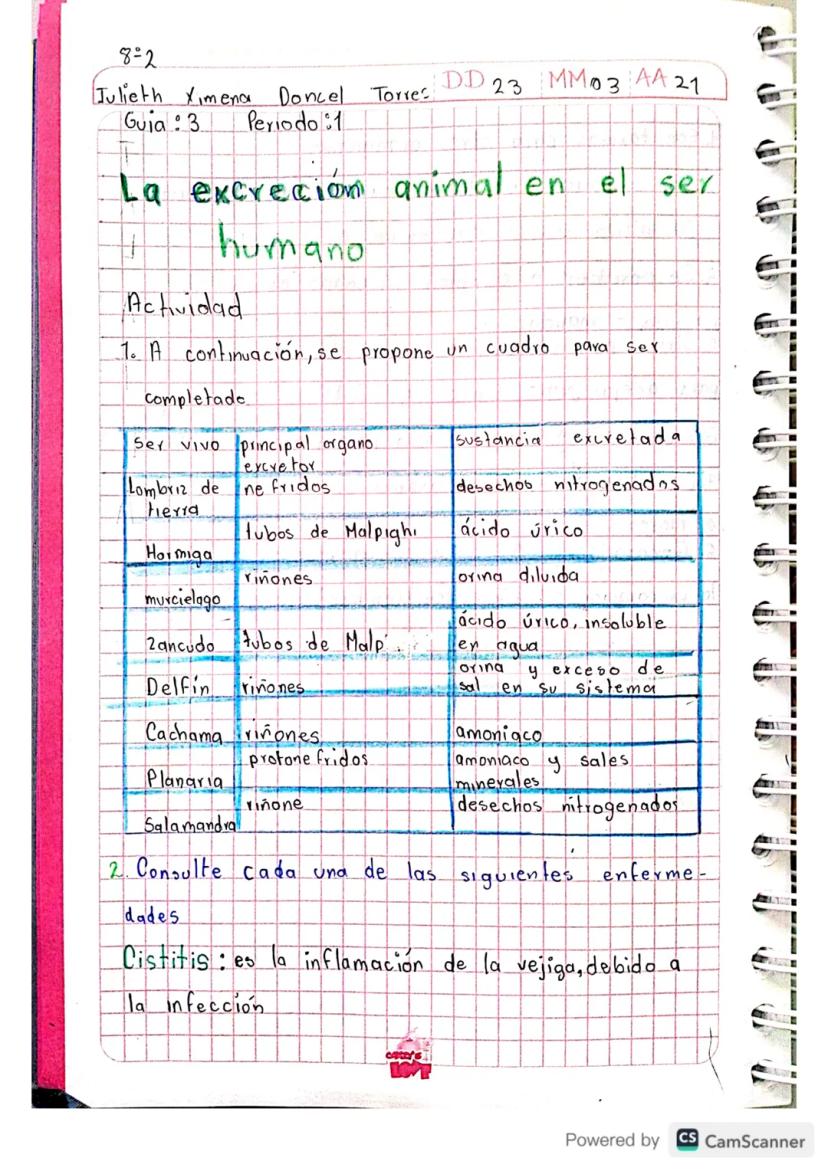 8°2
Julieth Ximena Doncel Torres DD 23 MM 03 AA 21
Guia: 3 Periodo: 1
La excreción animal en el ser
humano
Actividad
1. A continuación, se propone un cuadro para ser
completado
ser vivo principal organo excretor sustancia excretada
Lombriz de tierra nefridos desechos nitrogenados
Hormiga tubos de Malpighi ácido úrico
murcielago riñones orina diluida
zancudo tubos de Malp. ácido úrico, insoluble en agua
Delfín riñones orina y exceso de sal en su sistema
Cachama riñones amoniaco
Planaria protonefridos amoniaco y sales minerales
Salamandra riñone desechos nitrogenados
2. Consulte cada una de las siguientes enferme-
dades
Cistitis: es la inflamación de la vejiga, debido a
la infección
LOVE
Powered by CS CamScanner